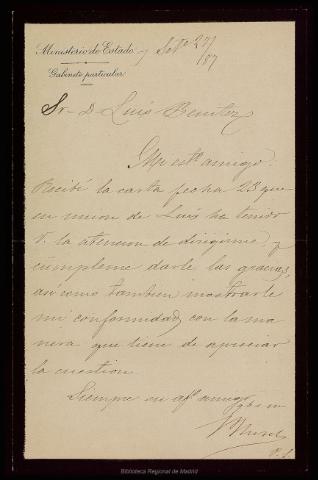 Ministerio de Estado
Gabinete particular
Sr. D. Luis Benitez
Mi estdo. amigo:
Recibi la carta fecha 23 que
en union de Luis ha tenido
V. la atencion de dirigirme, y
cumpleme darle las gracias,
asi como tambien mostrarle
mi conformidad con la ma
nera que tiene de apreciar
la cuestion
Siempre su af. amigo
Biblioteca Regional de Madrid